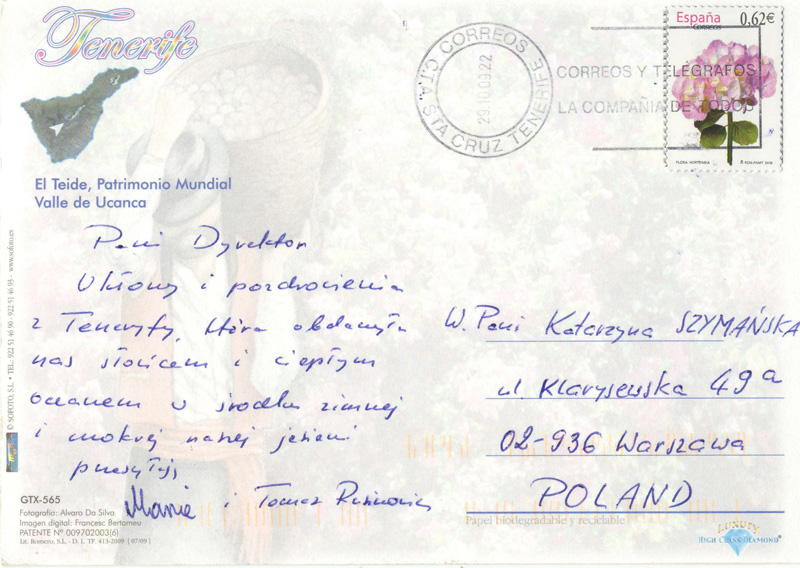 Tenerife
El Teide, Patrimonio Mundial
Valle de Ucanca
CORREOS
CTA. STA CRUZ TENERIFE
29.10.09.22
CORREOS Y TELEGRAFOS
LA COMPAÑIA DE TODOS
España 0,62€
CORREOS
FLORA HORTENSIA
Pani Dyrektor
Ukłony i pozdrowienia
z Teneryfy, która obdarzyła
nas słońcem i ciepłym
oceanem w środku zimnej
i mokrej naszej jesieni
przesyłają
Maria i Tomasz
W. Pani Katarzyna SZYMAŃSKA
ul. Klarysewska 49a
02-936 Warszawa
POLAND
© SOFOTO, S.L. • TEL.: 922 51 46 90 - 922 51 46 93 - www.sofoto.es
GTX-565
Fotografia: Alvaro Da Silva
Imagen digital: Francesc Bertomeu
PATENTE Nº 009702003(6)
Lit. Romero, S.L. - D. L. TF. 413-2009 [07/09]
Papel biodegradable y reciclable
LUXURY
HIGH CLASS DIAMOND